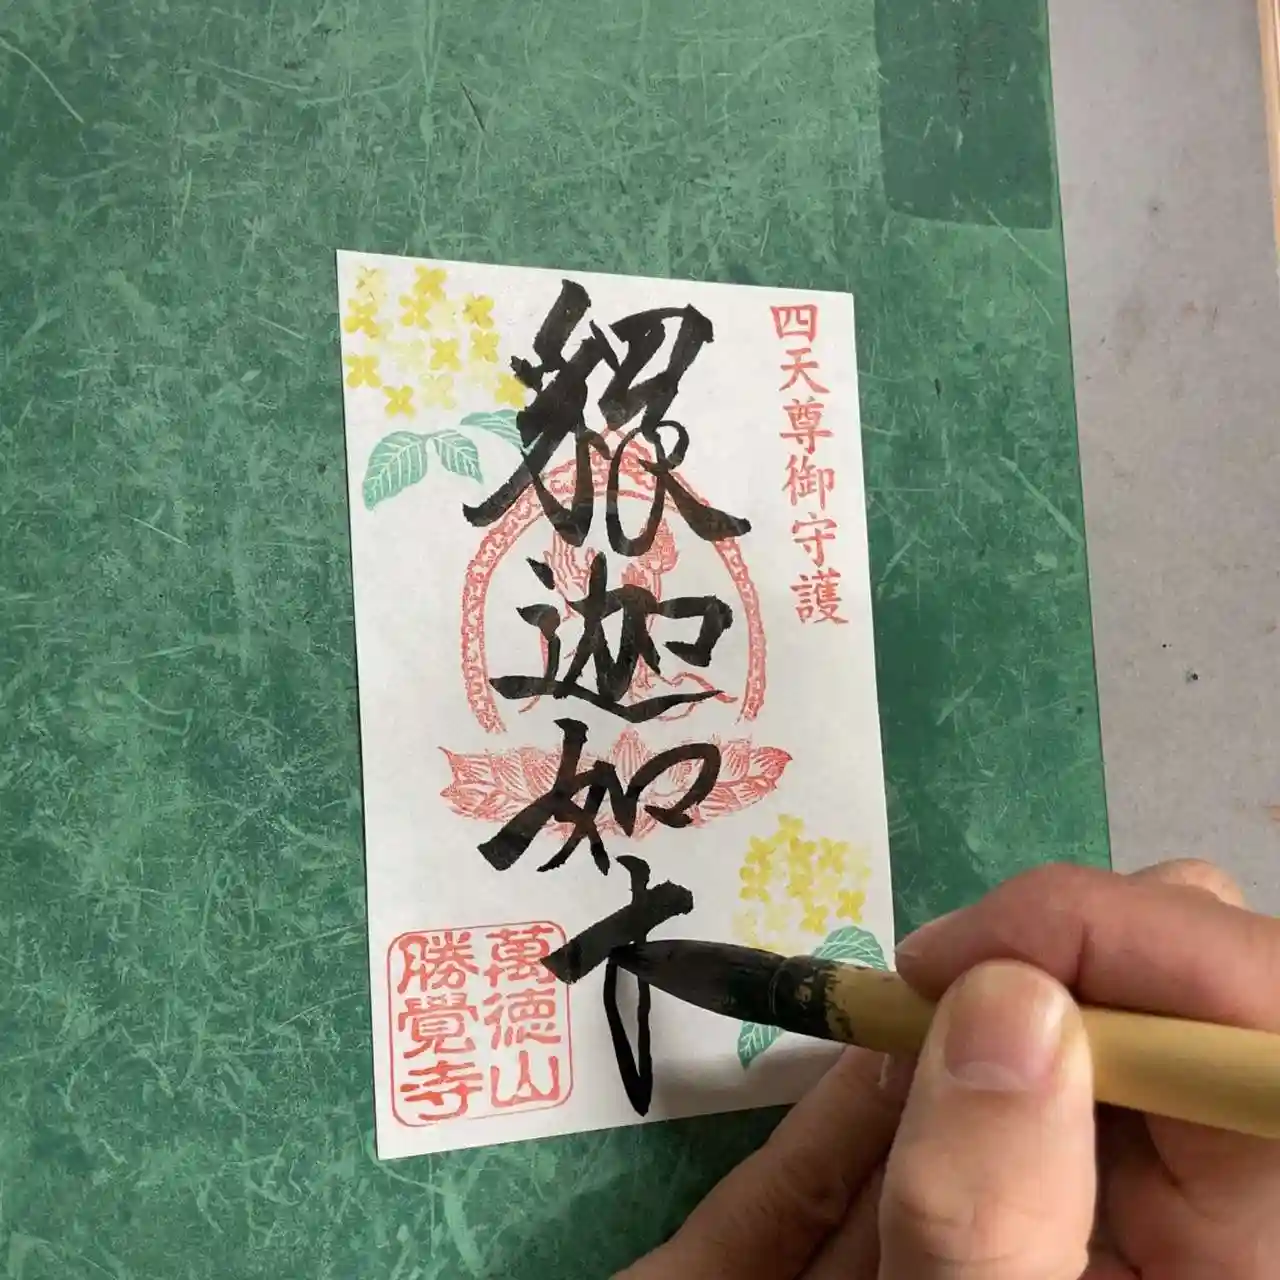 四天尊御守護
釋迦如
萬徳山
勝覺寺